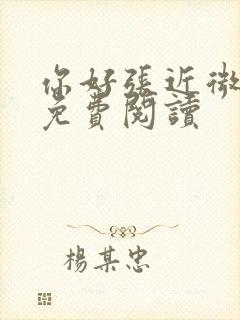 你好張近微
免費閱讀
楊某忠